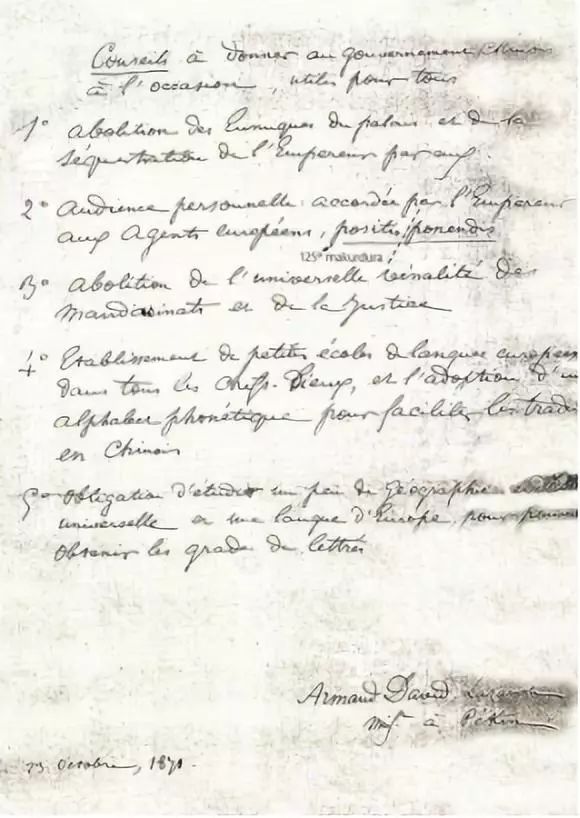 Conseils à donner au gouvernement chinois
à l'occasion, utiles pour tous
1° abolition des Eunuques du palais et de la
séquestration de l'Empereur par eux.
2° Audience personnelle accordée par l'Empereur
aux Agents européens, positis ponendis
125º makundura
3° abolition de l'universelle vénalité des
Mandarinats et de la Justice
4° Etablissement de petites écoles de langues européen
dans tous les chefs-lieux, et l'adoption d'un
alphabet phonétique pour faciliter les trad
en Chinois
5° Obligation d'étudier un peu de Géographie
universelle et une langue d'Europe, pour pouvoir
obtenir les grades de lettrés
Armand David
à Pékin
Octobre, 1871.